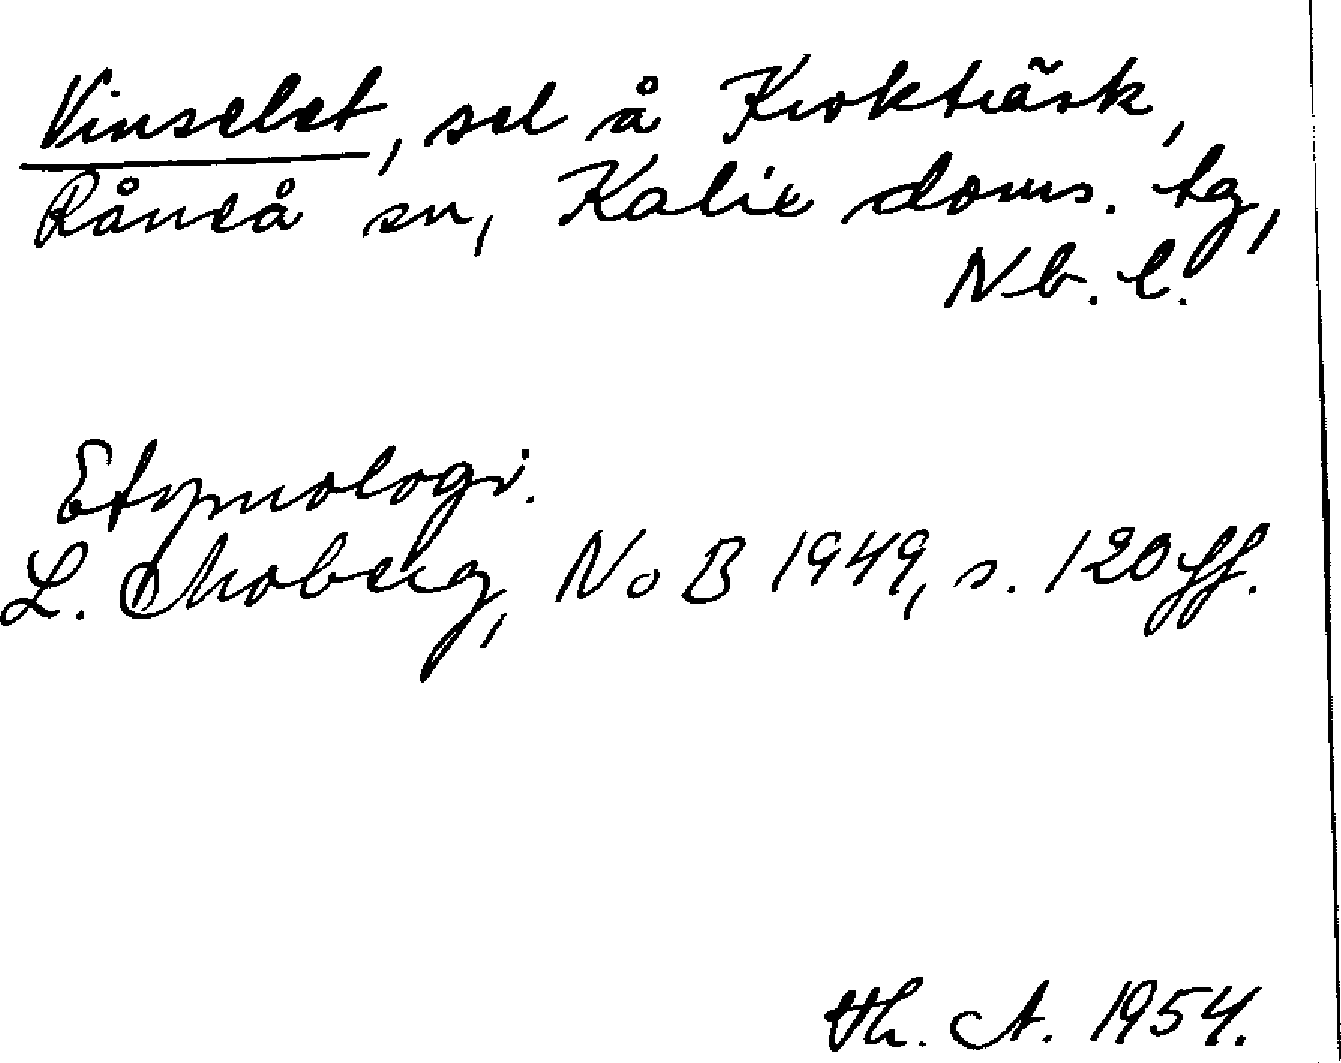 Vinselet, sel å Krokträsk,
Råneå sn, Kalix doms. tg,
Nb. l.
Etymologi.
L. Moberg, NoB 1949, s. 120 ff.
Th. A. 1954.